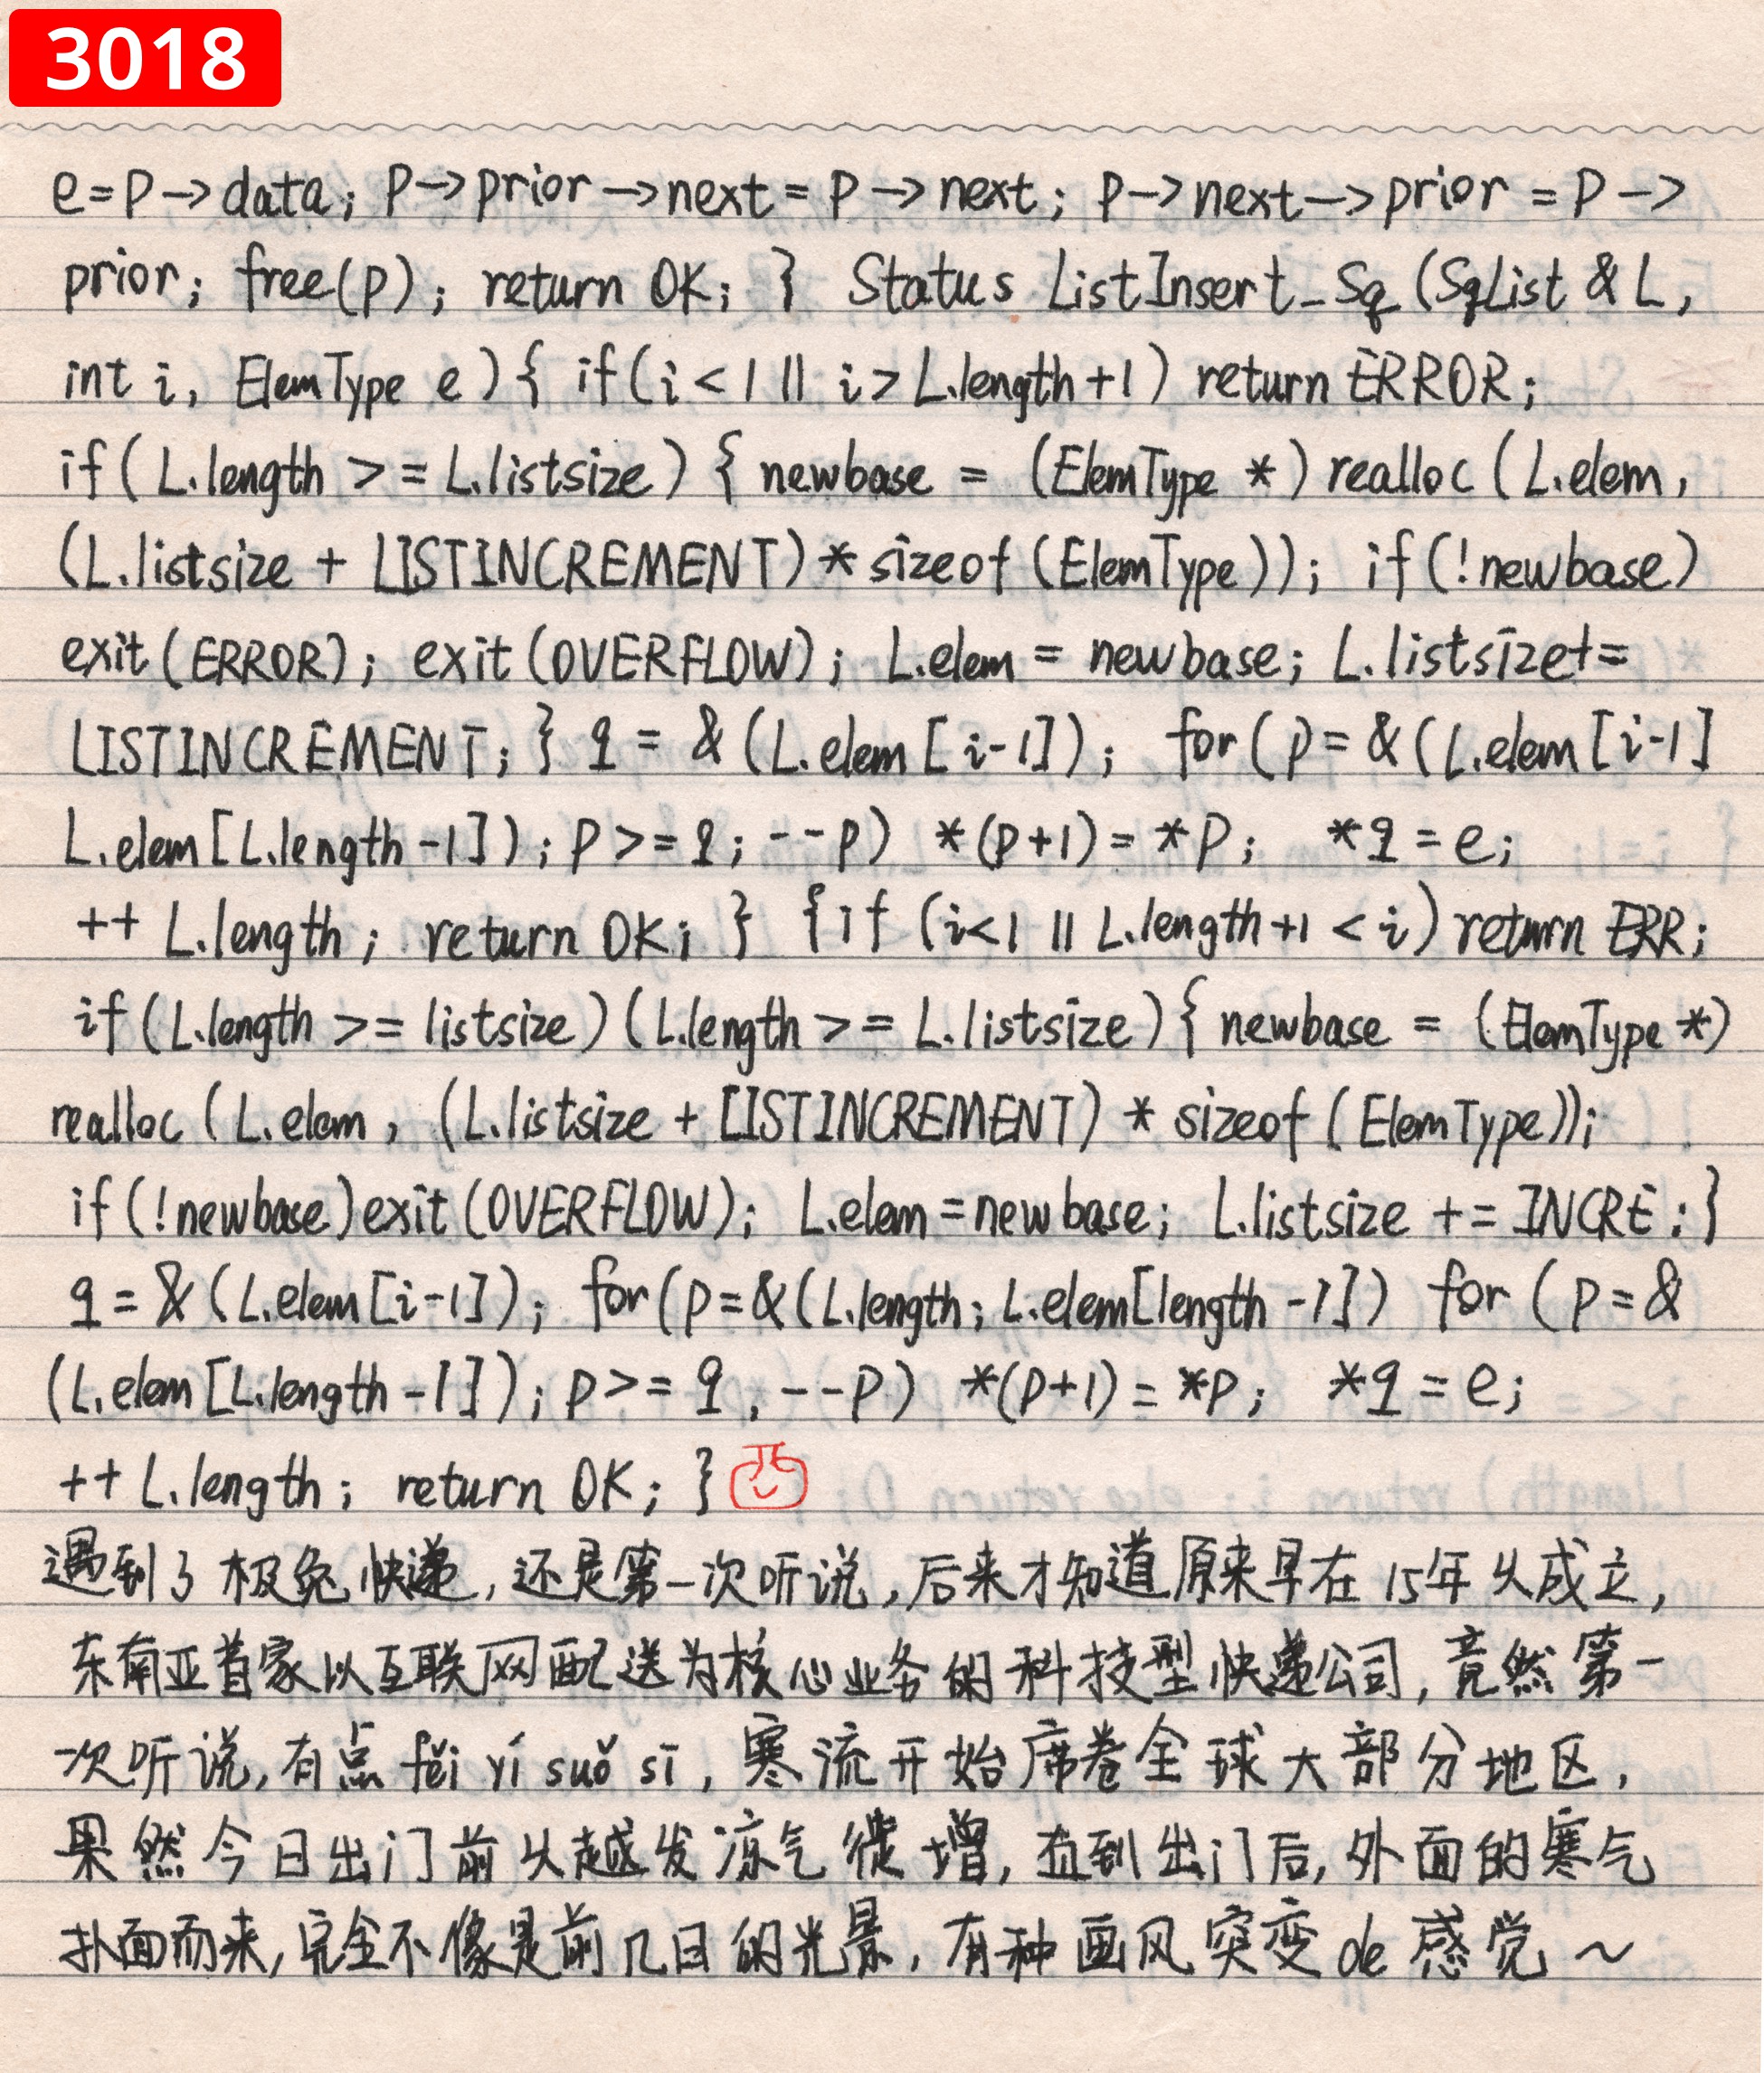 3018
e=P→data; P→prior→next=P→next; P→next→prior=P→
prior; free(p); return OK; } Status ListInsert_Sq(SqList &L,
int i, ElemType e){ if(i<1||i>L.length+1) return ERROR;
if(L.length >= L.listsize) { newbase = (ElemType *) realloc (L.elem,
(L.listsize + LISTINCREMENT)*sizeof(ElemType)); if(!newbase)
exit(ERROR); exit(OVERFLOW); L.elem = newbase; L.listsize+=
LISTINCREMENT; } q = &(L.elem[i-1]); for(p=&(L.elem[i-1]
L.elem[L.length-1]); p>=q; --p) *(p+1)=*p; *q=e;
++L.length; return OK; } {if (i<1||L.length+1<i) return ERR;
if(L.length >= listsize)(L.length >= L.listsize){ newbase = (ElemType *)
realloc (L.elem, (L.listsize + LISTINCREMENT) * sizeof(ElemType));
if(!newbase)exit(OVERFLOW); L.elem=newbase; L.listsize += INCRE;}
q=&(L.elem[i-1]); for(p=&(L.length; L.elem[length-1]) for (p=&
(L.elem[L.length-1]); p>=q, --p) *(p+1)=*p; *q=e;
++L.length; return OK; }
遇到了极兔快递,还是第一次听说,后来才知道原来早在15年从成立,
东南亚首家以互联网配送为核心业务的科技型快递公司,竟然第一
一次听说,有点fěi yí suǒ sī,寒流开始席卷全球大部分地区,
果然今日出门前从越发凉气徒增,直到出门后,外面的寒气
扑面而来,完全不像是前几日的光景,有种画风突变de感觉~